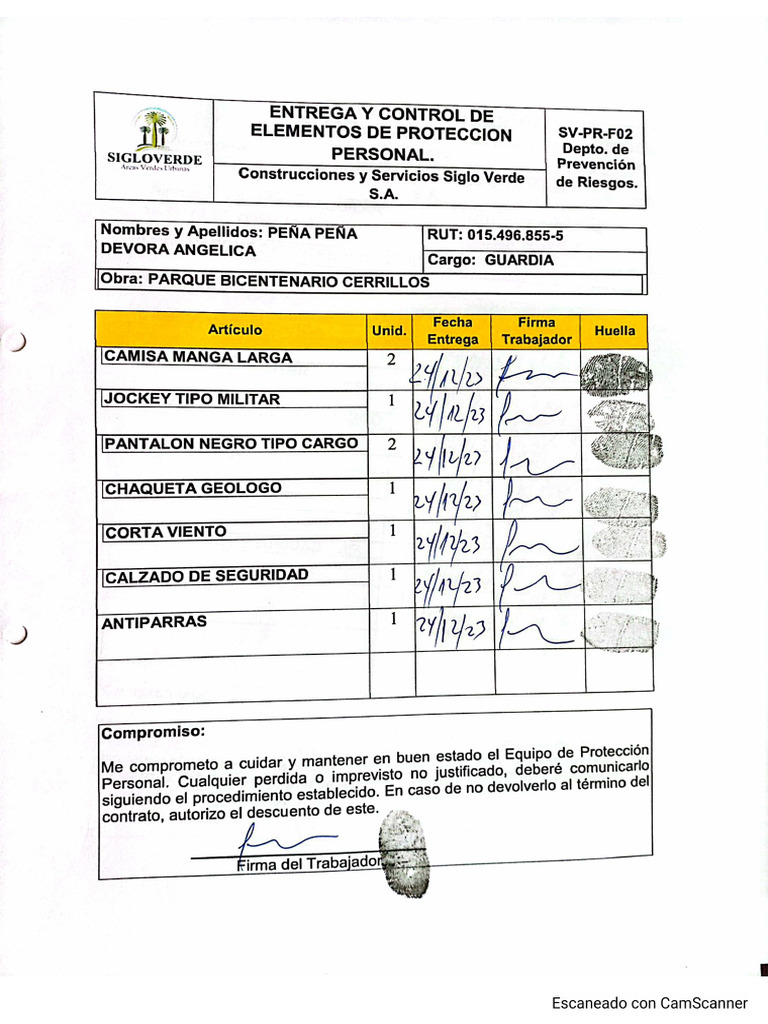 ENTREGA Y CONTROL DE
ELEMENTOS DE PROTECCION
PERSONAL.
Construcciones y Servicios Siglo Verde
S.A.
SIGLOVERDE
Areas Verdes Urbanas
SV-PR-F02
Depto. de
Prevención
de Riesgos.
Nombres y Apellidos: PEÑA PEÑA
DEVORA ANGELICA
RUT: 015.496.855-5
Cargo: GUARDIA
Obra: PARQUE BICENTENARIO CERRILLOS
Artículo Unid. Fecha Entrega Firma Trabajador Huella
CAMISA MANGA LARGA 2 24/12/23
JOCKEY TIPO MILITAR 1 24/12/23
PANTALON NEGRO TIPO CARGO 2 24/12/23
CHAQUETA GEOLOGO 1 24/12/23
CORTA VIENTO 1 24/12/23
CALZADO DE SEGURIDAD 1 24/12/23
ANTIPARRAS 1 24/12/23
Compromiso:
Me comprometo a cuidar y mantener en buen estado el Equipo de Protección
Personal. Cualquier perdida o imprevisto no justificado, deberé comunicarlo
siguiendo el procedimiento establecido. En caso de no devolverlo al término del
contrato, autorizo el descuento de este.
Firma del Trabajador
Escaneado con CamScanner